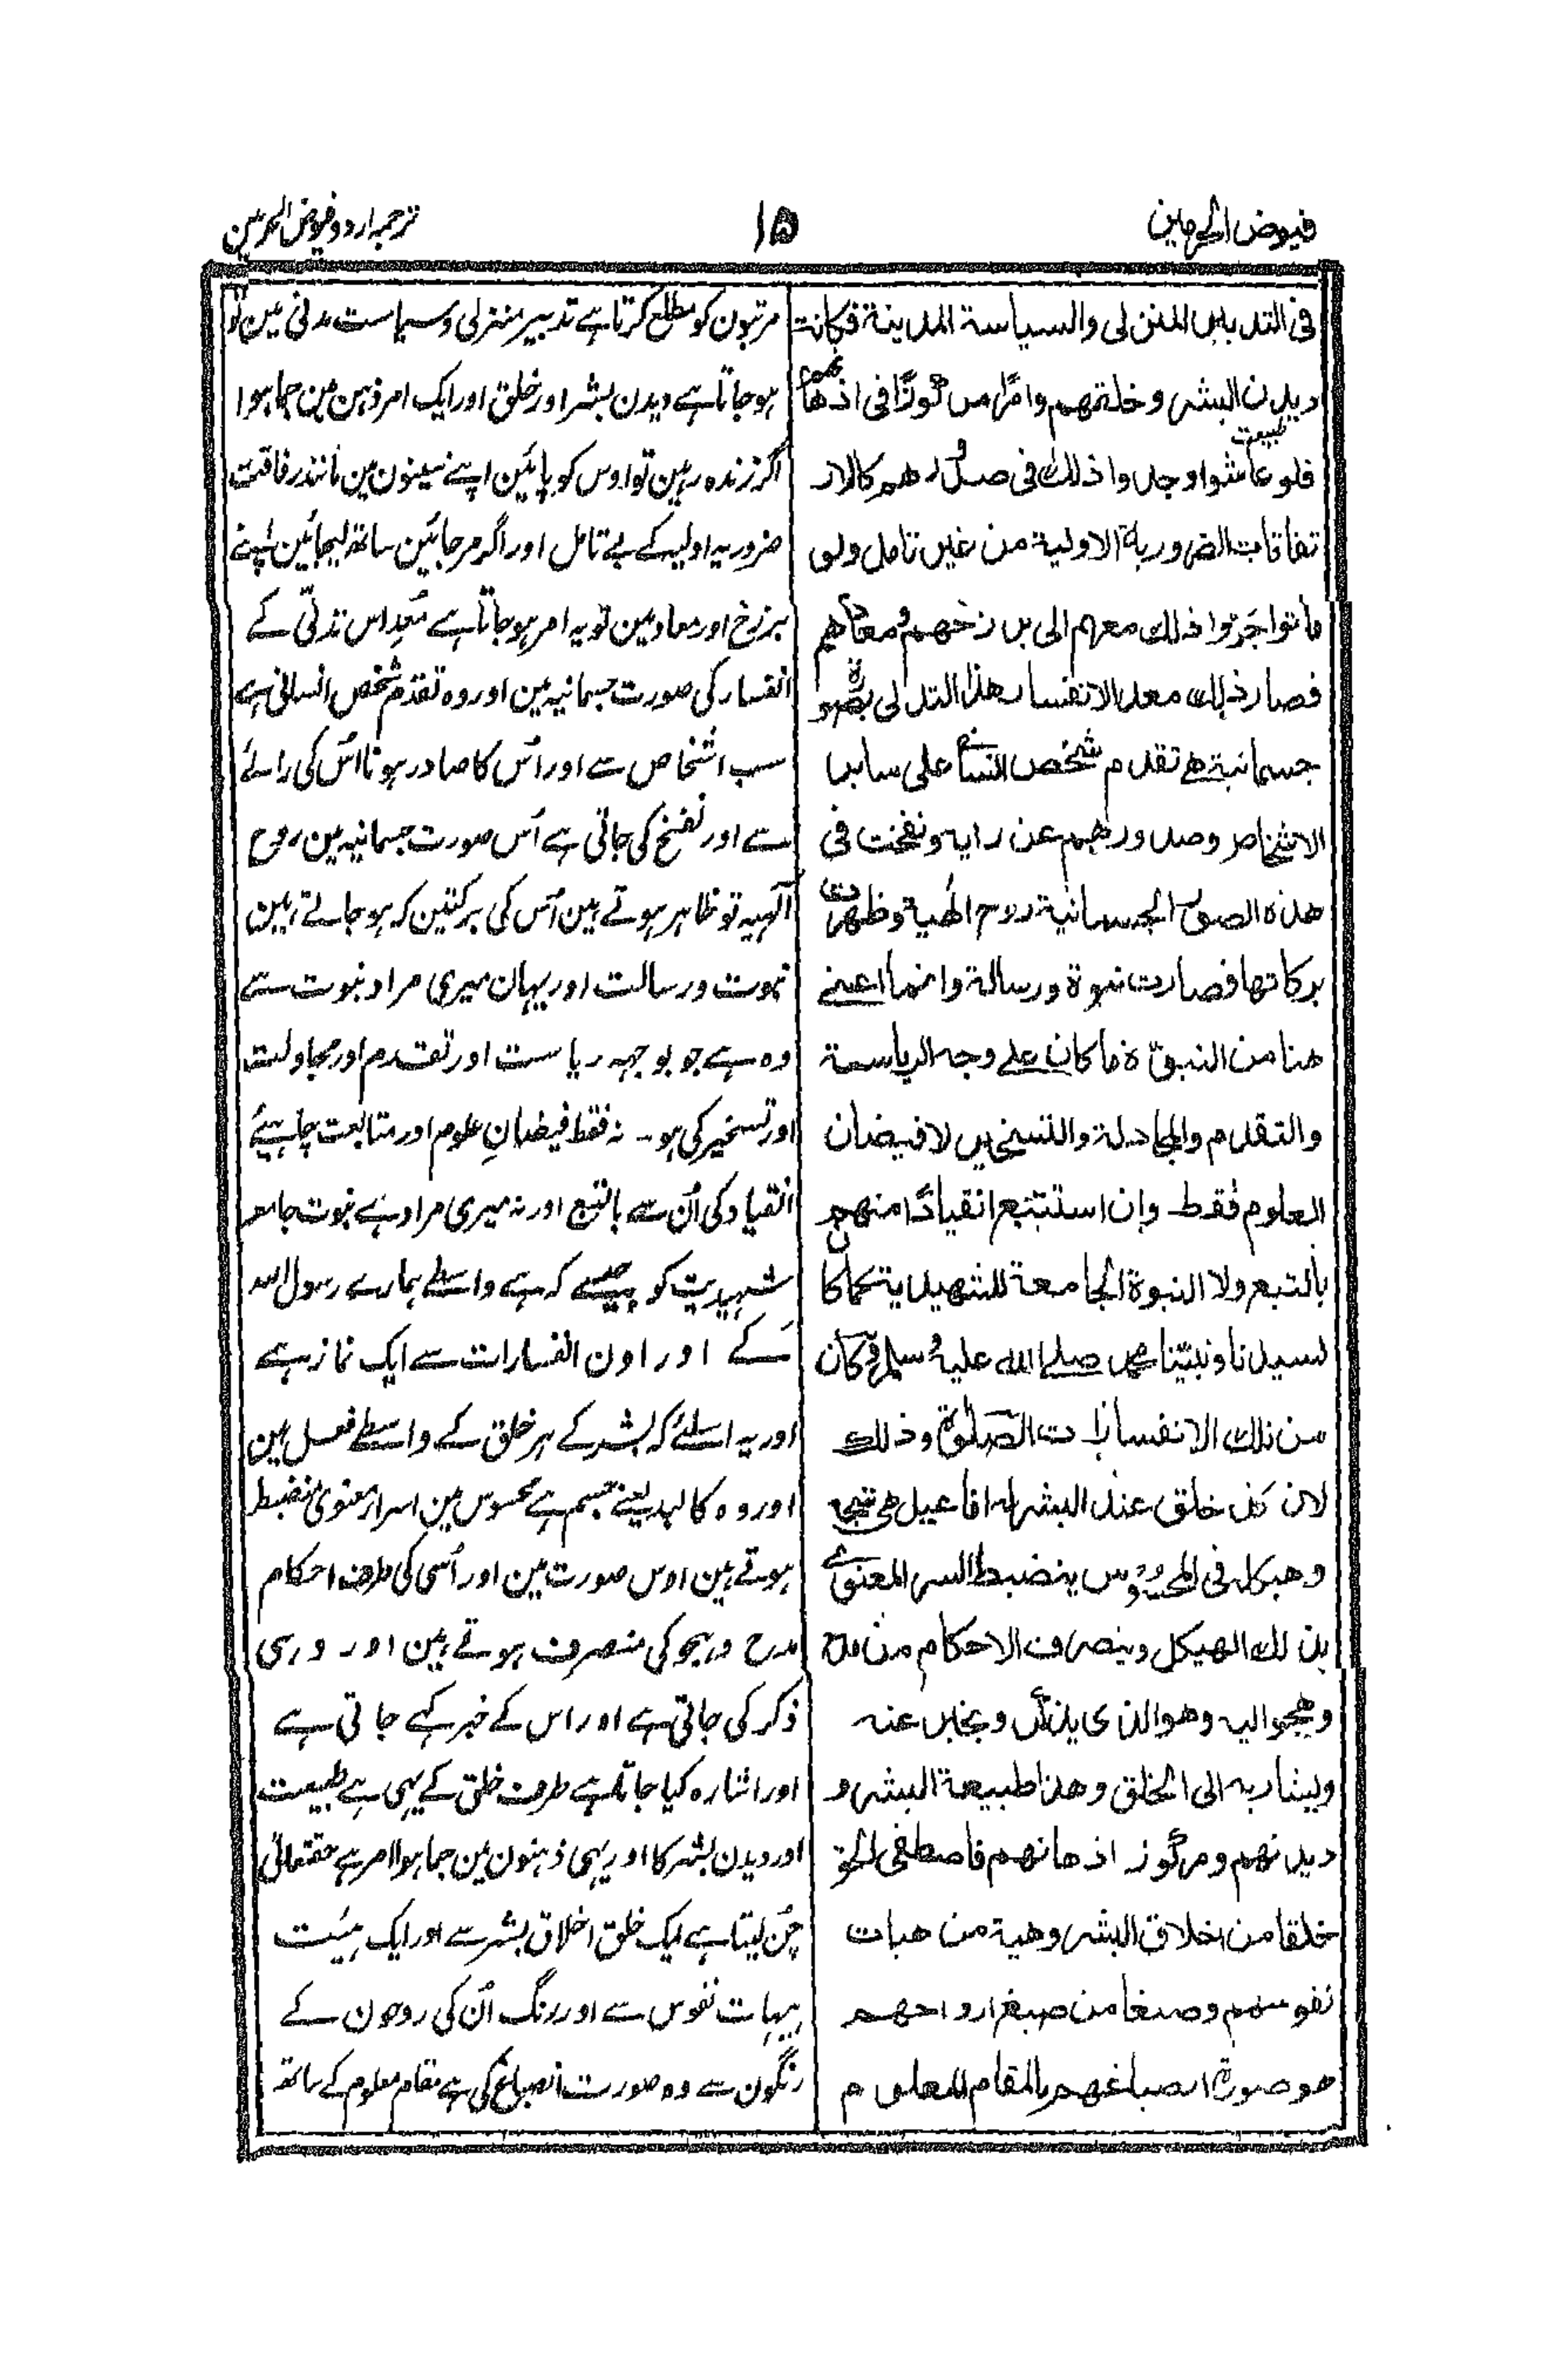 فیوض الحرمین
۱۵
ترجمہ اردو فیوض الحرمین
فی التدبیر المنزلی والسیاسة المدینة فکانت
دیدن البشر وخلتهم وامرًا مرکوزًا فی اذهانهم
فلو عاشوا وجدوا ذلك فی صدورهم کالار
تفاقات الضروریة الاولیة من غیر تامل ولو
ماتوا جَرّوا ذلك معهم الی برزخهم ومعادهم
فصار ذلك معد الانفسار هذا التدلی بصورة
جسمانیة هی تقدم شخص انسانی علی سایر
الاشخاص وصدورهم عن رایه ونفخت فی
هذه الصورة الجسمانیة روح الٰهیة وظهرت
برکاتها فصارت نبوة ورسالة وانما اعنی
هنا من النبوّة ما کان علی وجه الریاسة
والتقدم والمجادلة والتسخیر لا فیضان
العلوم فقط وان استتبع انقیادًا منهم
بالتبع ولا النبوة الجامعة للشهیدیة کما کان
لسیدنا ونبیّنا محمد صلی الله علیه وسلم وکان
من تلك الانفسارات الصلوة وذلك
لان کل خلق عند البشر له افاعیل هی شبح
وهیکل فی المحسوس ینضبط السر المعنوی
بذلك الهیکل وینصرف الاحکام من مدح
وهجو الیه وهو الذی یذکر ویخبر عنه
ویشار به الی الخلق وهذا طبیعة البشر و
دیدنهم ومرکوز اذهانهم فاصطفی الحق
خلقا من اخلاق البشر وهیة من هیات
نفوسهم وصبغا من صبغ ارواحهم
هو صورة انصباغهم بالمقام المعلوم
مرتبون کو مطلع کرتا ہے تدبیر منزلی وسیاست مدنی مین تو
ہو جاتا ہے دیدن بشر اور خلق اور ایک امر ذہن مین جما ہوا
اگر زندہ رہین تو اوس کو پائین اپنے سینون مین مانند رفاقت
ضروریہ اولیہ کے بے تامل اور اگر مر جائین ساتھ لیجائین اپنے
برزخ اور معاد مین تو یہ امر ہو جاتا ہے مُعِد اس تدلّی کے
انفسار کی صورت جسمانیہ مین اور وہ تقدم شخص انسانی ہے
سب اشخاص سے اور اُس کا صادر ہونا اُس کی رائے
سے اور نفخ کی جاتی ہے اُس صورت جسمانیہ مین روح
آلٰہیہ تو ظاہر ہوتے ہین اُس کی برکتین کہ ہو جاتے ہین
نبوت ورسالت اور یہان میری مراد نبوت سے
وہ ہے جو بوجہہ ریاست اور تقدم اور مجادلت
اور تسخیر کی ہو۔ نہ فقط فیضانِ علوم اور متابعت چاہیئے
انقیاد کی اُن سے بالتبع اور نہ میری مراد ہے نبوت جامعہ
شہیدیت کو جیسے کہ ہے واسطے ہمارے رسول اللہ
کے اور اون انفسارات سے ایک نماز ہے
اور یہ اسلئے کہ بشر کے ہر خلق کے واسطے فعل ہین
اور وہ کالبد یعنے جسم ہے محسوس مین اسرار معنوی منضبط
ہوتے ہین اوس صورت مین اور اُسی کی طرف احکام
مدح وہجو کی منصرف ہوتے ہین اور وہی
ذکر کی جاتی ہے اور اس کے خبر کہے جاتی ہے
اور اشارہ کیا جاتا ہے طرف خلق کے یہی ہے طبیعت
اور دیدن بشر کا اور یہی ذہنون مین جما ہوا امر ہے حقتعالیٰ
چُن لیتا ہے ایک خلق اخلاق بشر سے اور ایک ہیئت
ہیات نفوس سے اور رنگ اُن کی روحون کے
رنگون سے وہ صورت انصباغ کی ہے مقام معلوم کے ساتھ